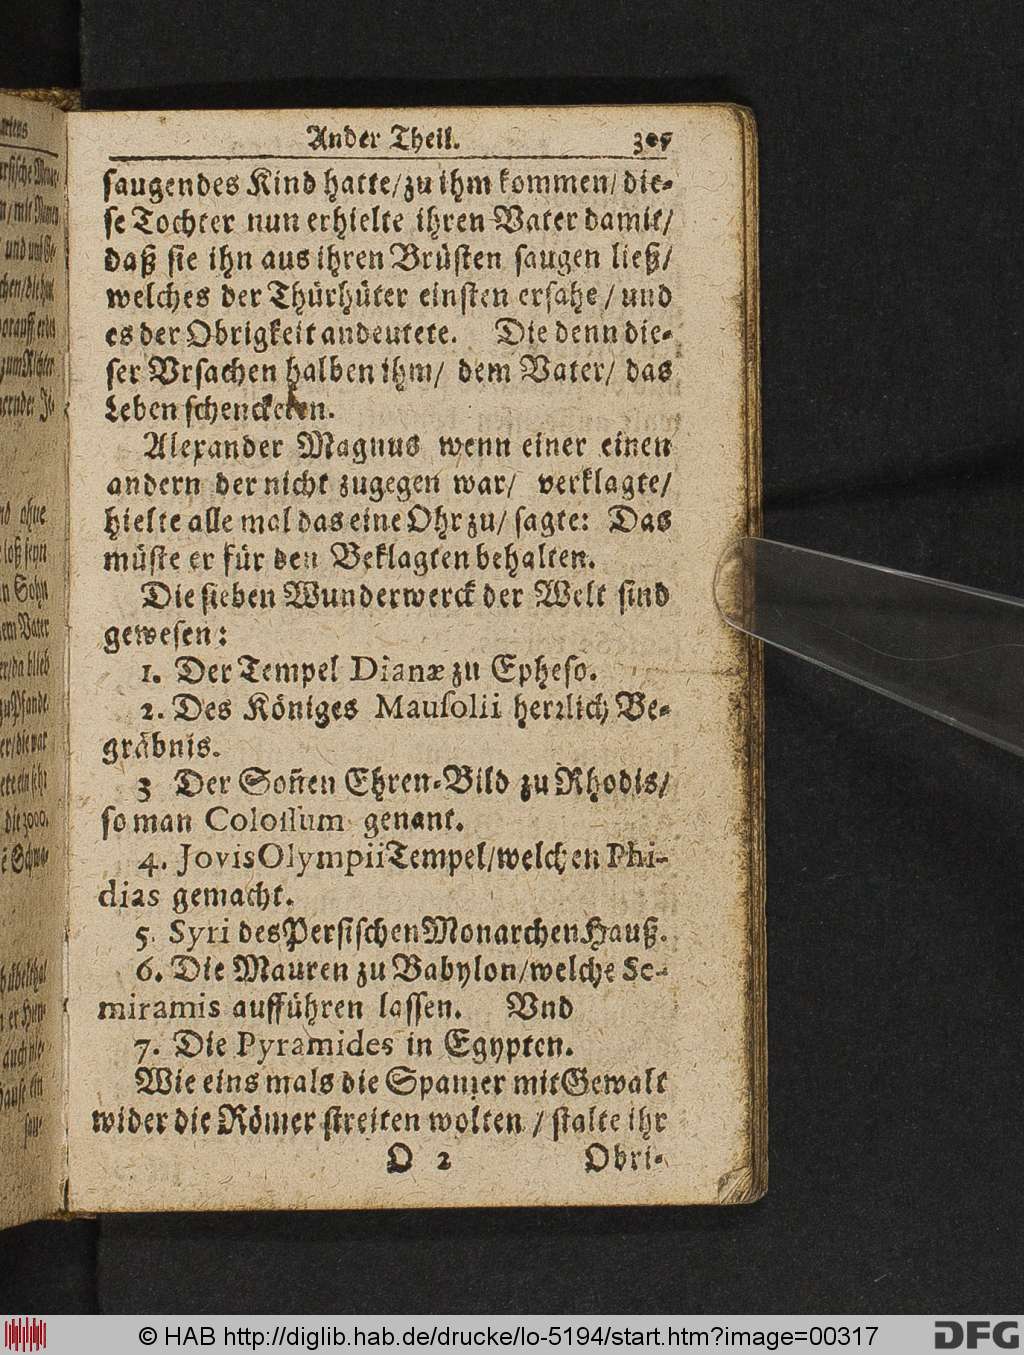 Ander Theil. 307
saugendes Kind hatte/ zu ihm kommen/ die-
se Tochter nun erhielte ihren Vater damit/
daß sie ihn aus ihren Brüsten saugen ließ/
welches der Thürhüter einsten ersahe/ und
es der Obrigkeit andeutete. Die denn die-
ser Vrsachen halben ihm/ dem Vater/ das
Leben schencketen.
Alexander Magnus wenn einer einen
andern der nicht zugegen war/ verklagte/
hielte alle mal das eine Ohr zu/ sagte: Das
müste er für den Beklagten behalten.
Die sieben Wunderwerck der Welt sind
gewesen:
1. Der Tempel Dianæ zu Epheso.
2. Des Königes Mausolii herrlich Be-
gräbnis.
3 Der Soñen Ehren-Bild zu Rhodis/
so man Colossum genant.
4. Jovis Olympii Tempel/ welchen Phi-
dias gemacht.
5. Syri des Persischen Monarchen Hauß.
6. Die Mauren zu Babylon/ welche Se-
miramis aufführen lassen. Vnd
7. Die Pyramides in Egypten.
Wie eins mals die Spanier mit Gewalt
wider die Römer streiten wolten/ stalte ihr
O 2 Obri-
© HAB http://diglib.hab.de/drucke/lo-5194/start.htm?image=00317
DFG